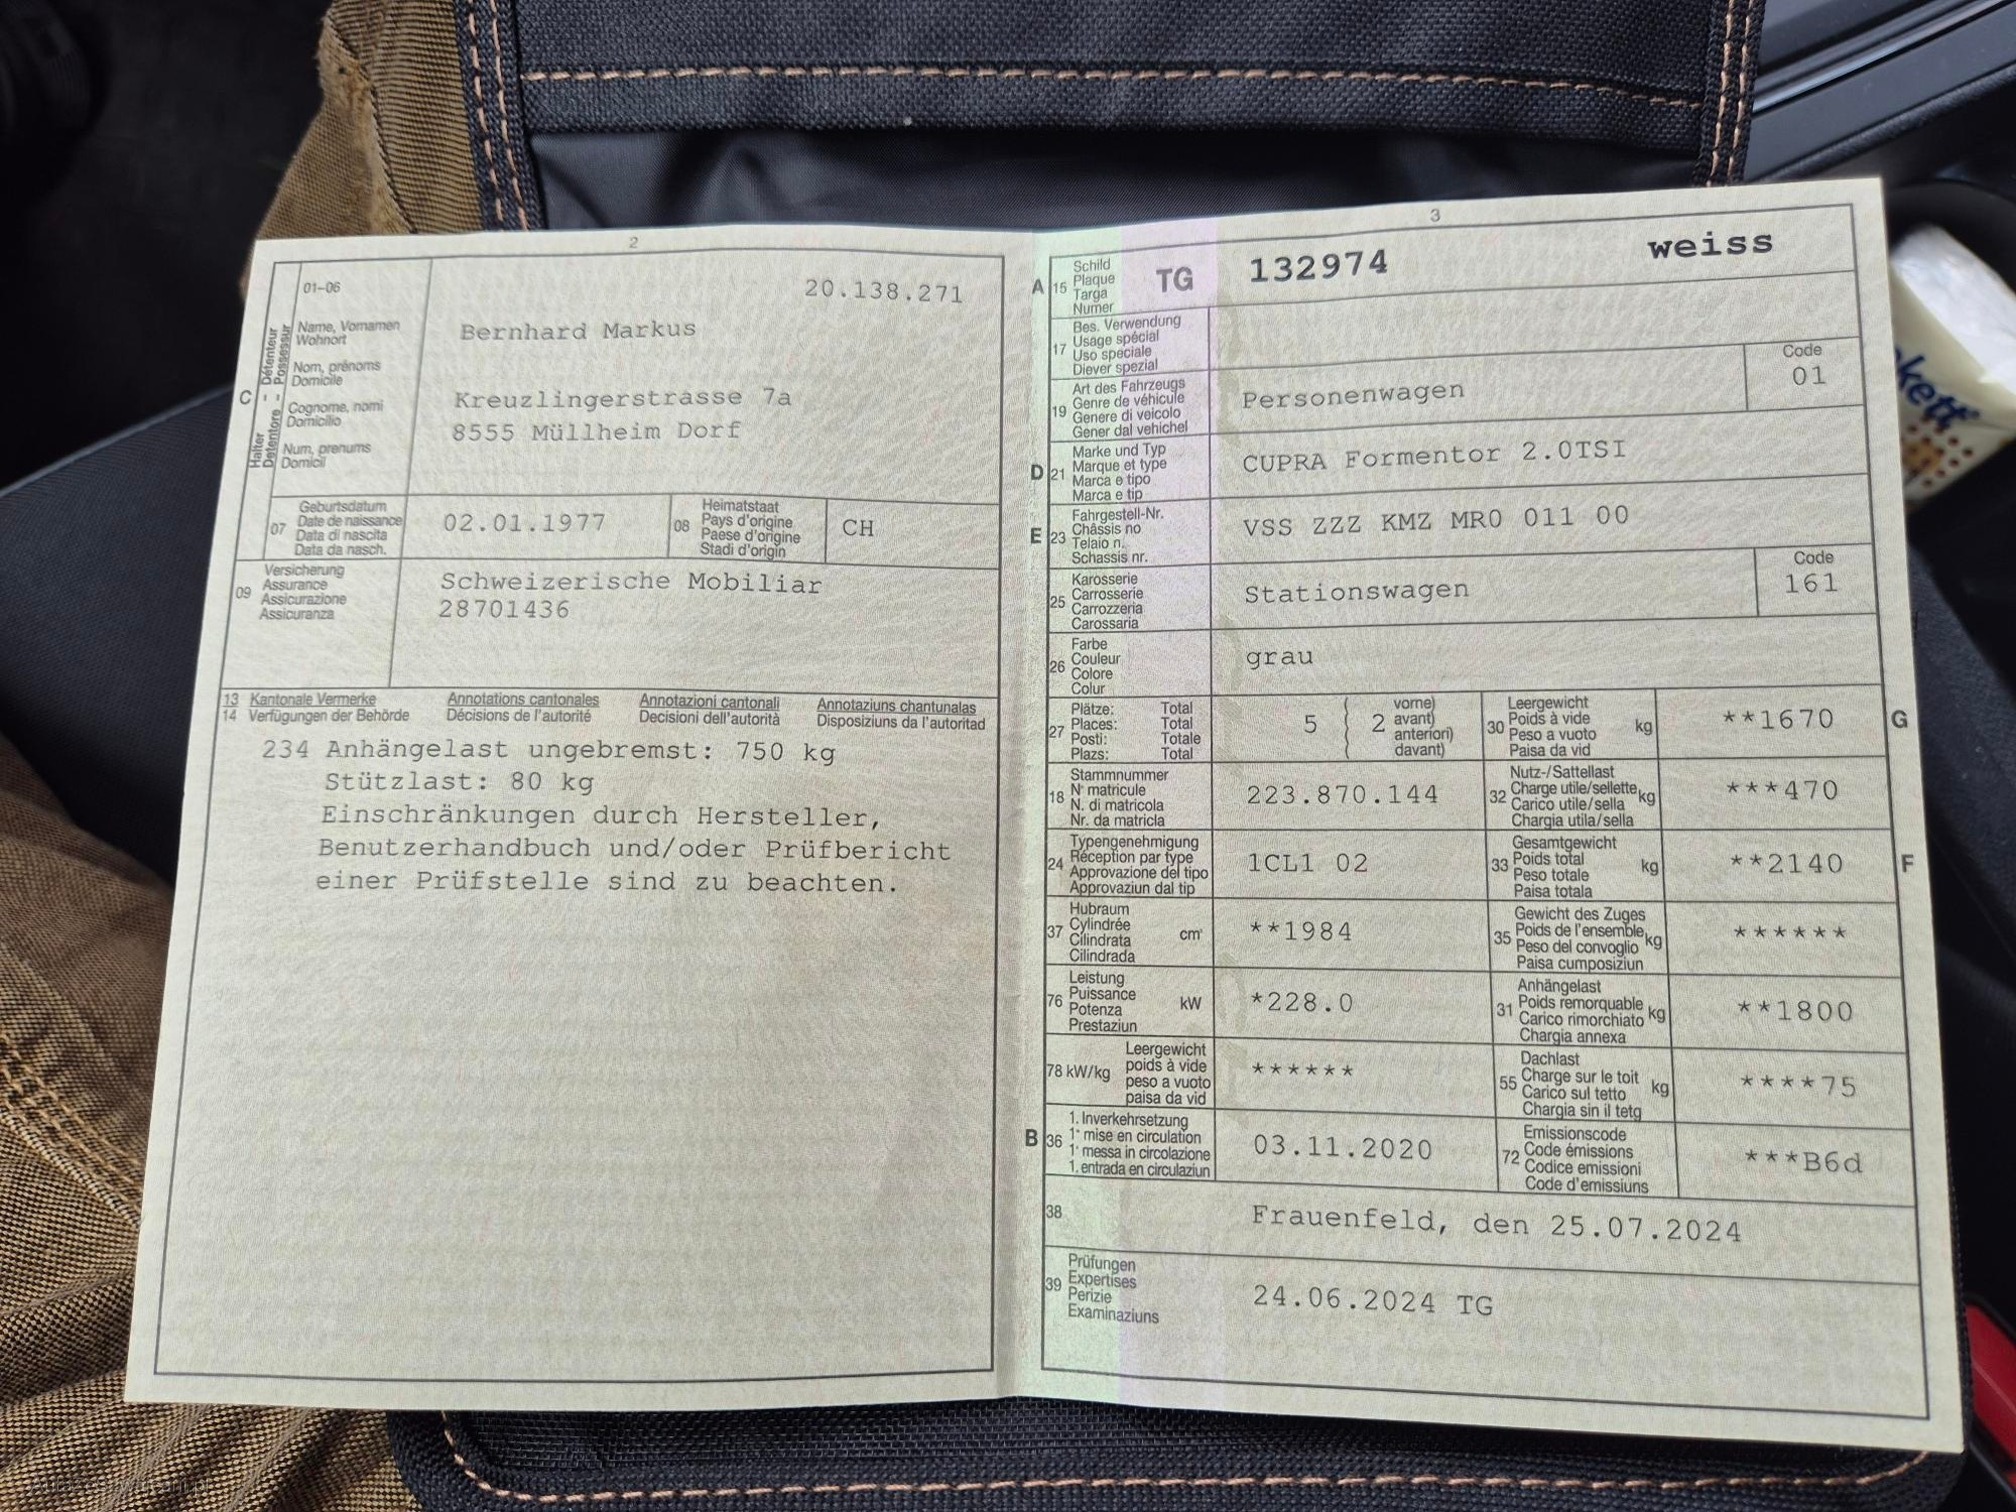 2
01-06
20.138.271
C
Halter - Détenteur
Detentore - Possessur
Name, Vornamen
Wohnort
Nom, prénoms
Domicile
Cognome, nomi
Domicilio
Num, prenums
Domicil
Bernhard Markus
Kreuzlingerstrasse 7a
8555 Müllheim Dorf
07
Geburtsdatum
Date de naissance
Data di nascita
Data da nasch.
02.01.1977
08
Heimatstaat
Pays d'origine
Paese d'origine
Stadi d'origin
CH
09
Versicherung
Assurance
Assicurazione
Assicuranza
Schweizerische Mobiliar
28701436
13 Kantonale Vermerke Annotations cantonales Annotazioni cantonali Annotaziuns chantunalas
14 Verfügungen der Behörde Décisions de l'autorité Decisioni dell'autorità Disposiziuns da l'autoritad
234 Anhängelast ungebremst: 750 kg
Stützlast: 80 kg
Einschränkungen durch Hersteller,
Benutzerhandbuch und/oder Prüfbericht
einer Prüfstelle sind zu beachten.
3
A
15
Schild
Plaque
Targa
Numer
TG 132974 weiss
17
Bes. Verwendung
Usage spécial
Uso speciale
Diever spezial
19
Art des Fahrzeugs
Genre de véhicule
Genere di veicolo
Gener dal vehichel
Personenwagen
Code
01
D
21
Marke und Typ
Marque et type
Marca e tipo
Marca e tip
CUPRA Formentor 2.0TSI
E
23
Fahrgestell-Nr.
Châssis no
Telaio n.
Schassis nr.
VSS ZZZ KMZ MR0 011 00
25
Karosserie
Carrosserie
Carrozzeria
Carossaria
Stationswagen
Code
161
26
Farbe
Couleur
Colore
Colur
grau
27
Plätze: Total
Places: Total
Posti: Totale
Plazs: Total
5 ( 2
vorne)
avant)
anteriori)
davant)
30
Leergewicht
Poids à vide
Peso a vuoto
Paisa da vid
kg
**1670
G
18
Stammnummer
N° matricule
N. di matricola
Nr. da matricla
223.870.144
32
Nutz-/Sattellast
Charge utile/sellette
Carico utile/sella
Chargia utila/sella
kg
***470
24
Typengenehmigung
Réception par type
Approvazione del tipo
Approvaziun dal tip
1CL1 02
33
Gesamtgewicht
Poids total
Peso totale
Paisa totala
kg
**2140
F
37
Hubraum
Cylindrée
Cilindrata
Cilindrada
cm³
**1984
35
Gewicht des Zuges
Poids de l'ensemble
Peso del convoglio
Paisa cumposiziun
kg
******
76
Leistung
Puissance
Potenza
Prestaziun
kW
*228.0
31
Anhängelast
Poids remorquable
Carico rimorchiato
Chargia annexa
kg
**1800
78 kW/kg
Leergewicht
poids à vide
peso a vuoto
paisa da vid
******
55
Dachlast
Charge sur le toit
Carico sul tetto
Chargia sin il tetg
kg
****75
B
36
1. Inverkehrsetzung
1° mise en circulation
1° messa in circolazione
1. entrada en circulaziun
03.11.2020
72
Emissionscode
Code émissions
Codice emissioni
Code d'emissiuns
***B6d
38
Frauenfeld, den 25.07.2024
39
Prüfungen
Expertises
Perizie
Examinaziuns
24.06.2024 TG